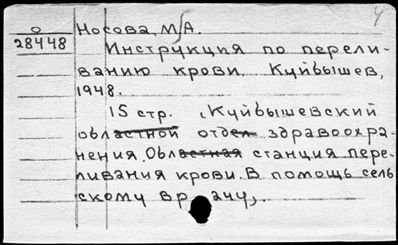 О
28448
Носова, М.А.
Инструкция по перели-
ванию крови. Куйбышев,
1948.
15 стр. (Куйбышевский
областной отдел здравоохра-
нения. Областная станция пере-
ливания крови. В помощь сель
скому врачу).